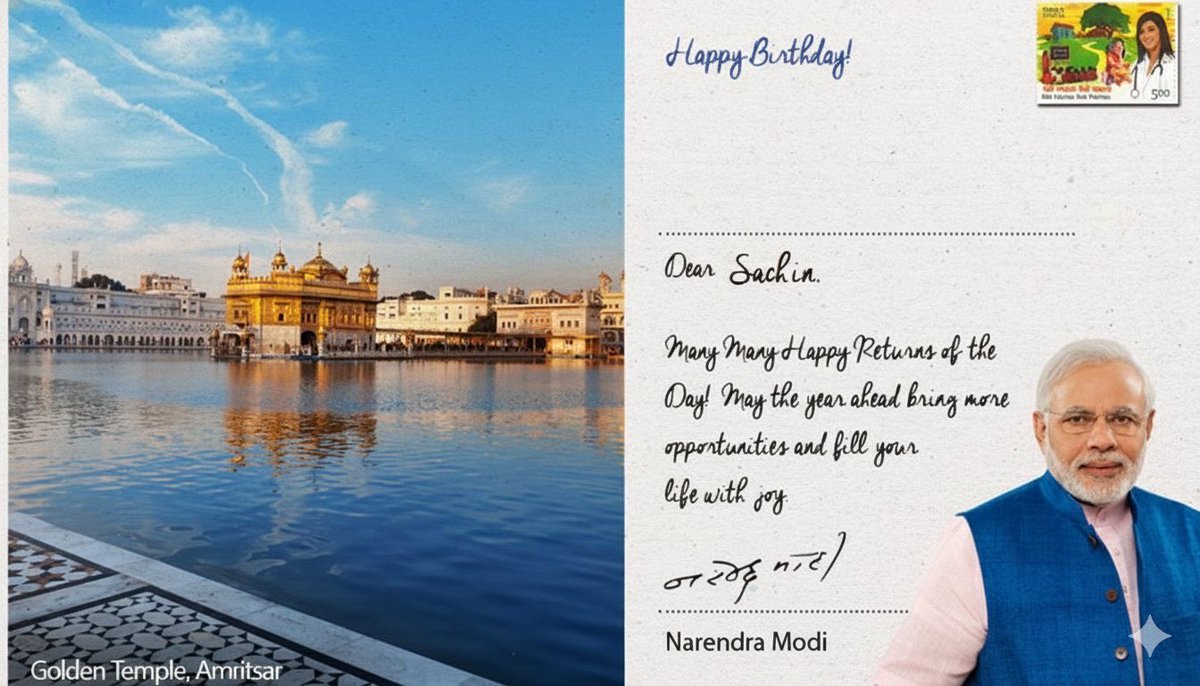 Happy Birthday!
5.00
Dear Sachin.
Many Many Happy Returns of the
Day! May the year ahead bring more
opportunities and fill your
life with joy.
नरेन्द्र मोदी
Narendra Modi
Golden Temple, Amritsar